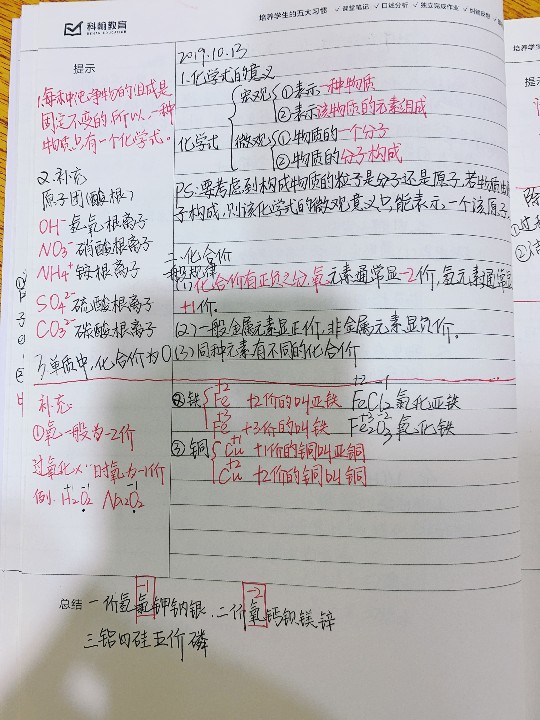 科翰教育
培养学生的五大习惯 ✓课堂笔记 ✓口述分析 ✓独立完成作业
提示
1.每种纯净物的组成是
固定不变的,所以一种
物质只有一个化学式。
2.补充
原子团(酸根)
OH⁻ 氢氧根离子
NO₃⁻ 硝酸根离子
NH₄⁺ 铵根离子
SO₄²⁻ 硫酸根离子
CO₃²⁻ 碳酸根离子
3.单质中,化合价为0
补充:
①氧一般为-2价
过氧化×时氧为-1价
例. H₂O₂ Na₂O₂
+1 -1 +1 -1
2019.10.13
1.化学式的意义
化学式
宏观 ①表示一种物质
②表示该物质的元素组成
微观 ①物质的一个分子
②物质的分子构成
PS:要考虑到构成物质的粒子是分子还是原子,若物质由
子构成,则该化学式的微观意义只能表示一个该原子.
二.化合价
一般规律
(1)化合价有正负之分,氧元素通常显-2价,氢元素通常显
+1价.
(2)一般金属元素显正价,非金属元素显负价.
(3)同种元素有不同的化合价
②铁 +2 Fe +2价的叫亚铁 +2 -1 FeCl₂ 氯化亚铁
+3 Fe +3价的叫铁 +3 -2 Fe₂O₃ 氧化铁
③铜 +1 Cu +1价的铜叫亚铜
+2 Cu +2价的铜叫铜
-1 -2
总结 一价氢氯钾钠银.二价氧钙钡镁锌
三铝四硅五价磷